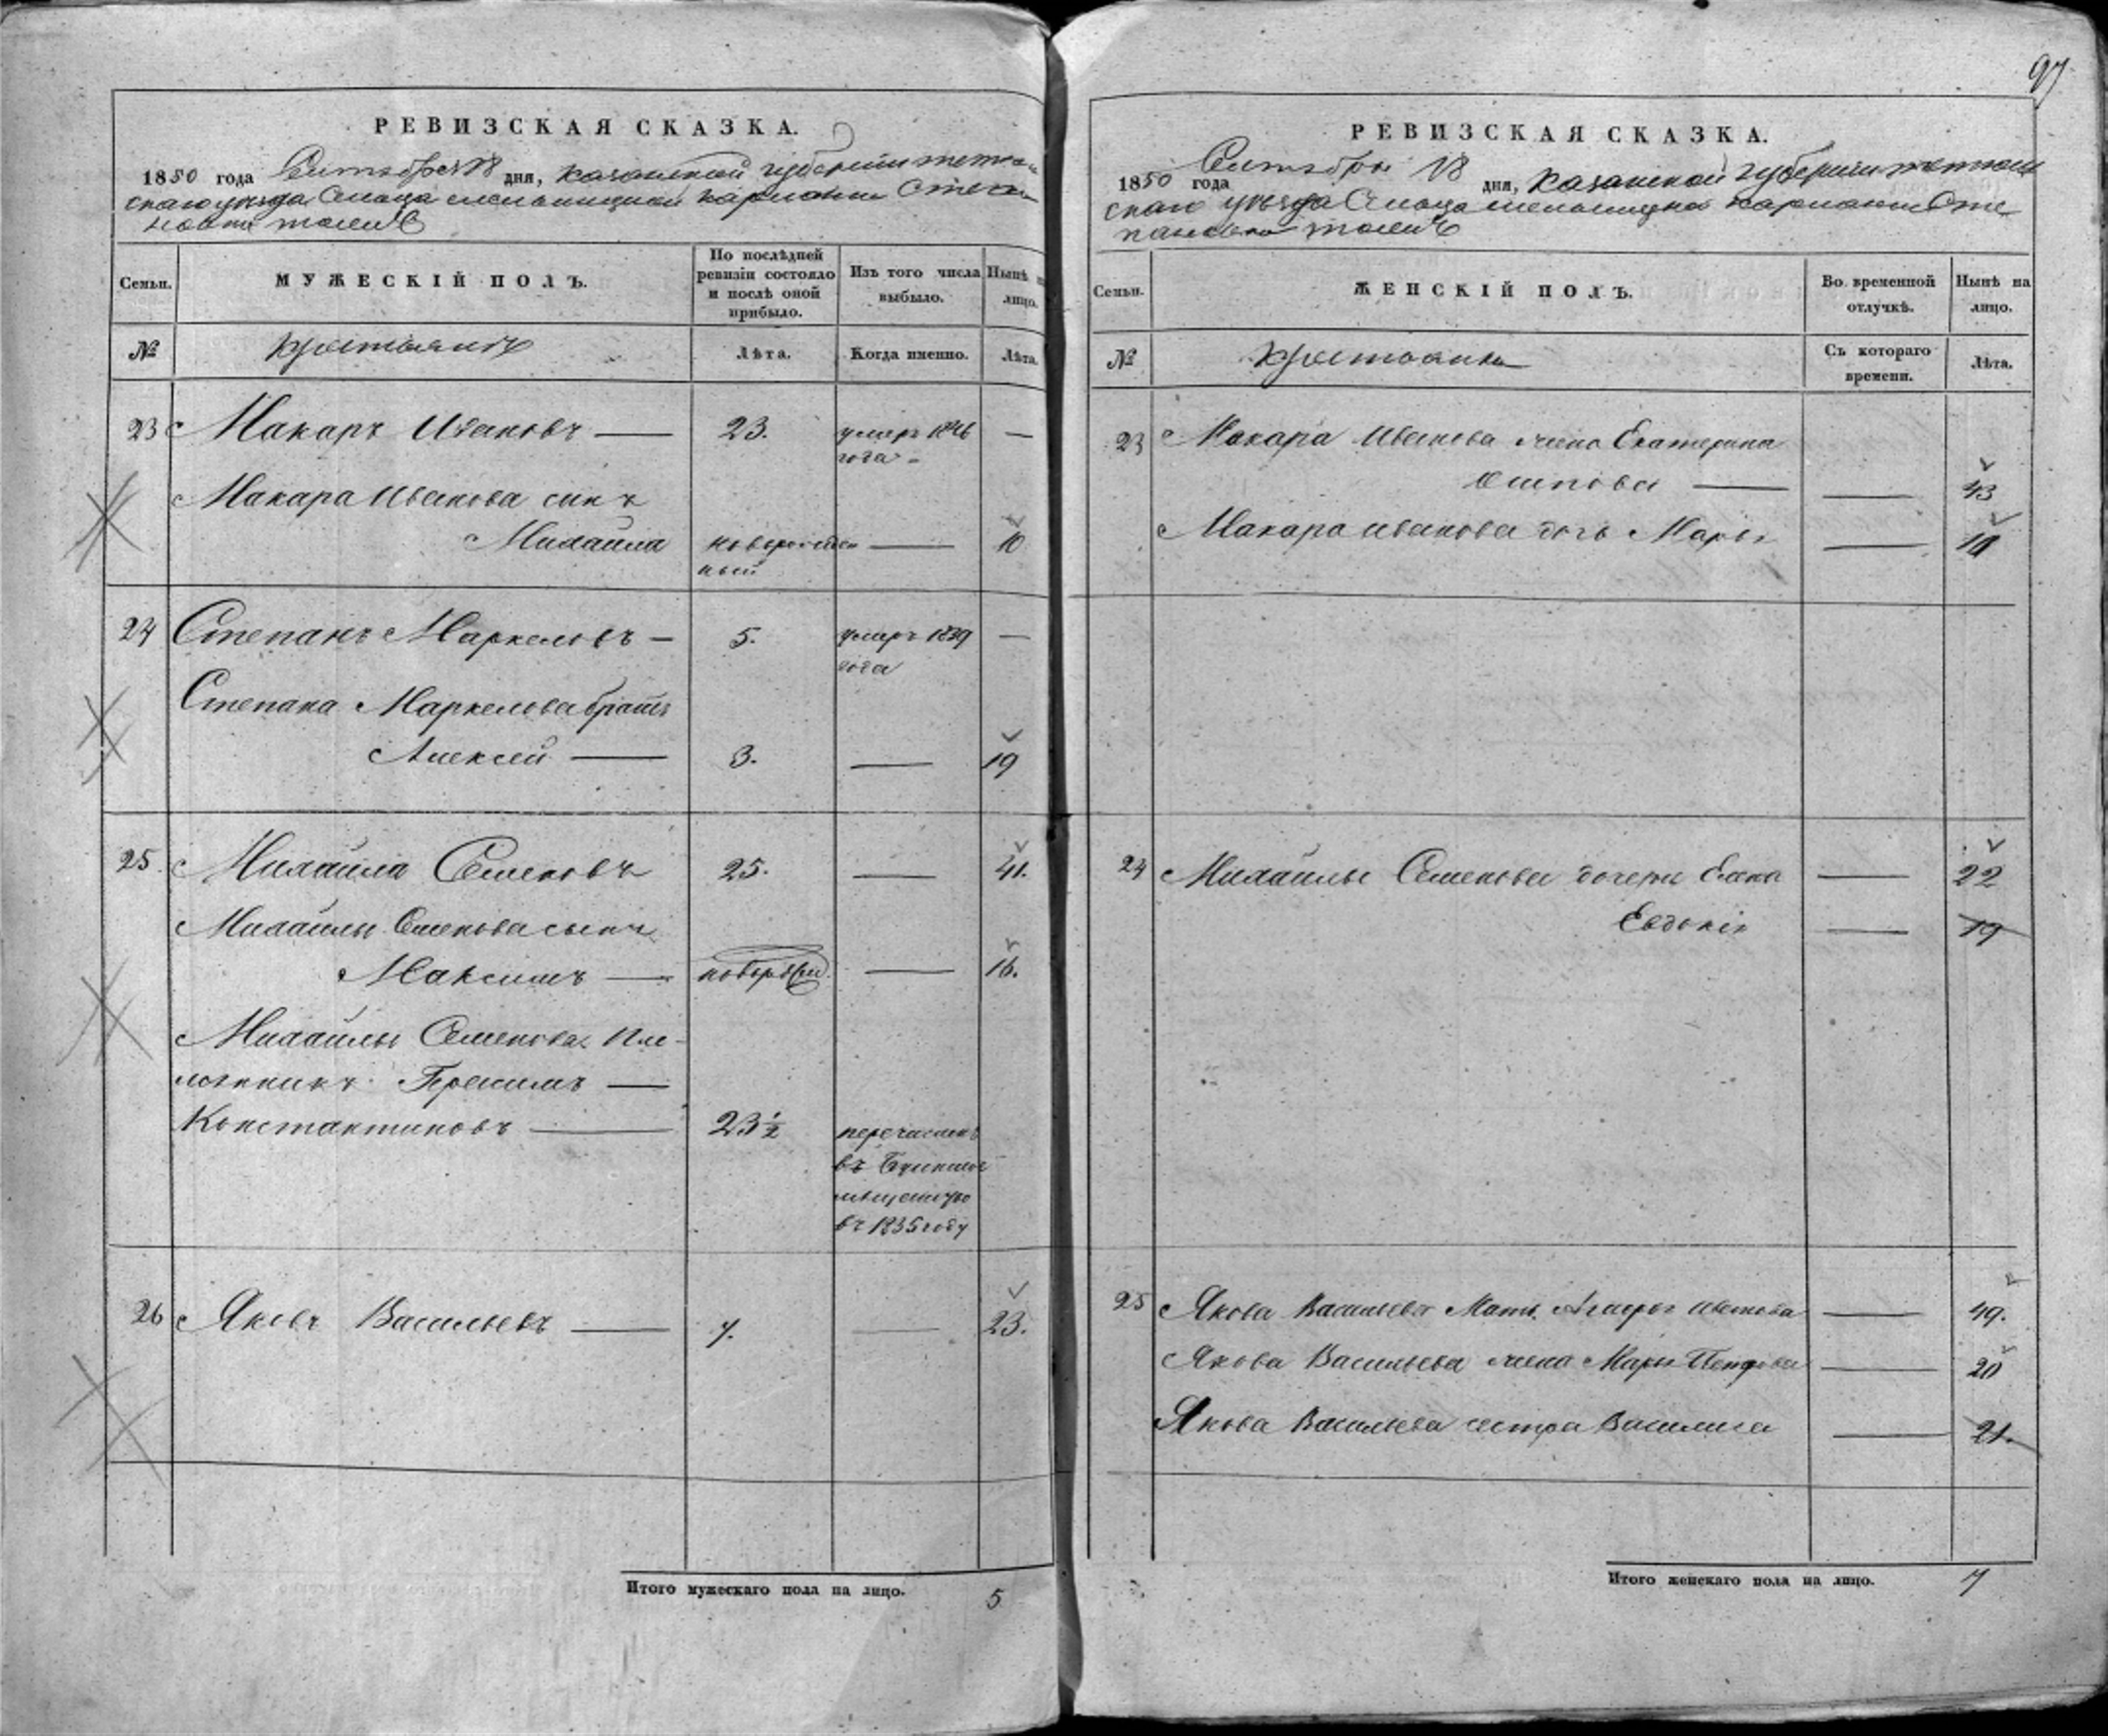 97
РЕВИЗСКАЯ СКАЗКА.
1850 года Сентября 18 дня, Казанской губернии тетюш
скаго уезда Села
Семьи.
МУЖЕСКІЙ ПОЛЪ.
По послѣдней ревизіи состояло и послѣ оной прибыло.
Изъ того числа выбыло.
Нынѣ на лицо.
№
крестьянъ
Лѣта.
Когда именно.
Лѣта.
23 Макаръ Ивановъ — 23. умеръ 1846 —
года
Макара Иванова сынъ
Михаила новорожден — 10
ный
24 Степанъ Маркеловъ — 5. умеръ 1839 —
года
Степана Маркелова братъ
Алексей — 3. — 19
25. Михаила Семеновъ 25. — 41.
Михаилы Семенова сынъ
Максимъ — новорож — 16.
Михаилы Семенова пле-
мянникъ Герасимъ —
Константиновъ — 23 1/2 перечисленъ
въ
мещанство
въ 1835 году
26 Яковъ Васильевъ — 7. — 23.
Итого мужескаго пола на лицо. 5
РЕВИЗСКАЯ СКАЗКА.
1850 года Сентября 18 дня, Казанской губерніи тетюш
скаго уезда Села
Семьи.
ЖЕНСКІЙ ПОЛЪ.
Во временной отлучкѣ.
Нынѣ на лицо.
№
крестьянка
Съ котораго времени.
Лѣта.
23 Макара Иванова жена Екатерина
Осипова — — 43
Макара Иванова дочь Марья — 10
24 Михаилы Семенова дочери Елена — 22
Евдокія — 19
25 Якова Васильева Мать Иванова — 49.
Якова Васильева жена Марья Петрова — 20
Якова Васильева сестра Василиса — 21.
Итого женскаго пола на лицо. 7